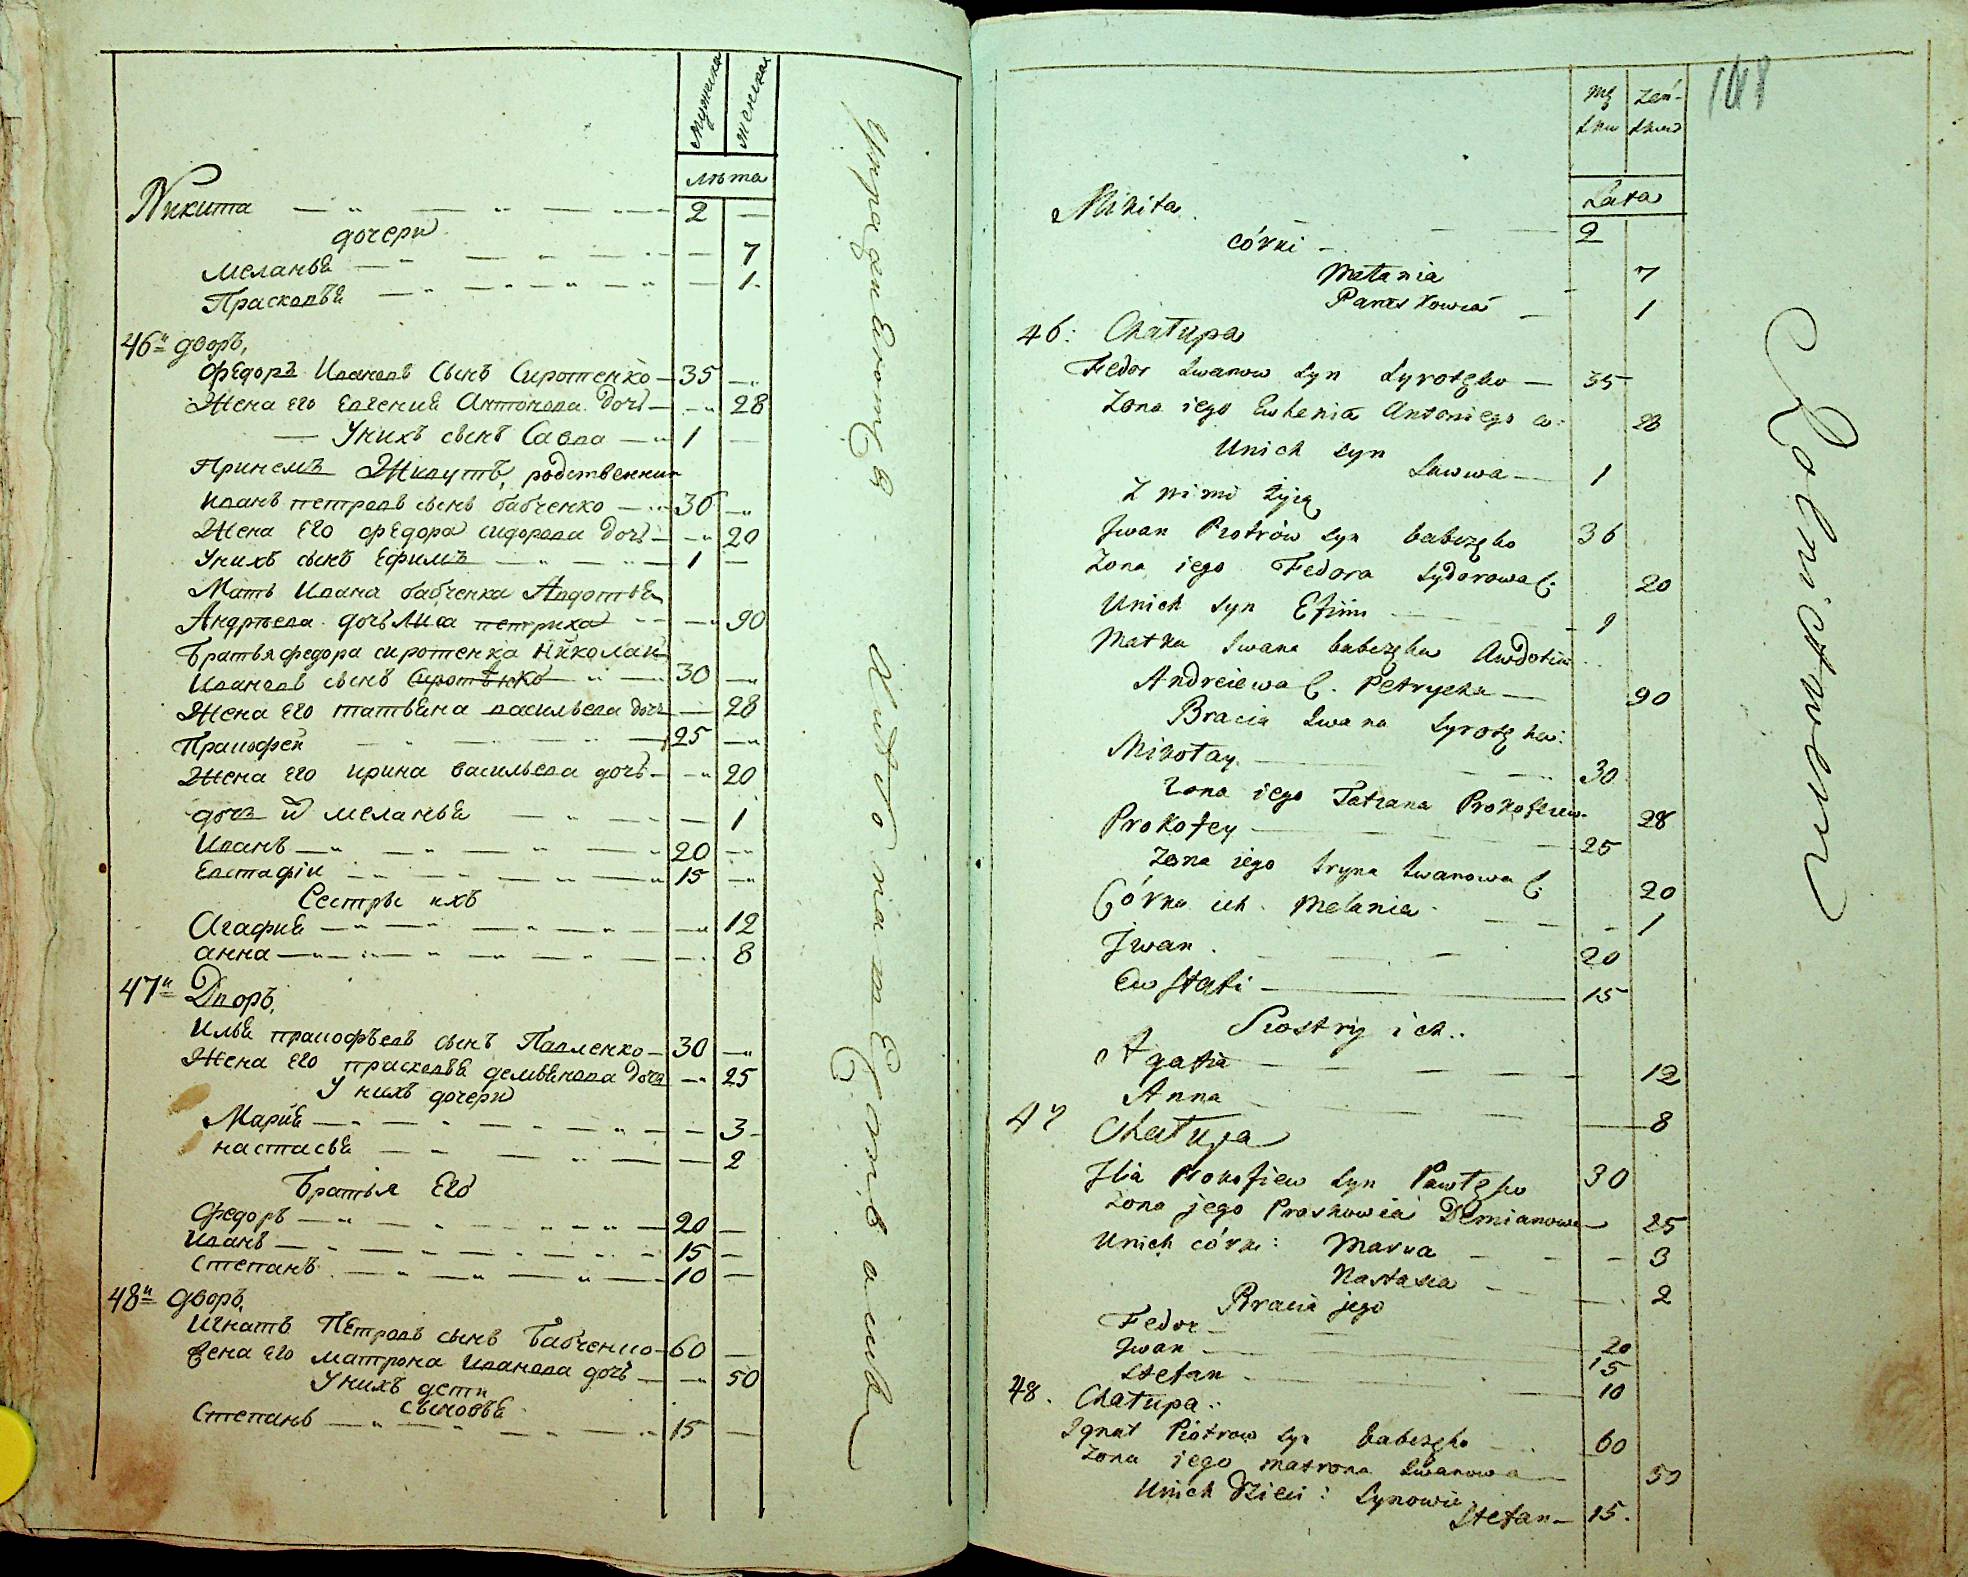 Мужеска
женская
лѣта
Никита 2
дочери
Меланья 7
Прасковья 1
46й дворъ
Федоръ Ивановъ сынъ Сиротенко 35
Жена его Евгения Антонова дочь 28
У нихъ сынъ Савва 1
При немъ Живутъ, родственники
Иванъ петровъ сынъ бабченко 36
Жена Его федора сидорова дочь 20
У нихъ сынъ Ефимъ 1
Мать Ивана бабченка Авдотья
Андрѣева дочь петриха 90
Братья федора сиротенка Николай
Ивановъ сынъ Сиротѣнко 30
Жена Его татьяна васильева дочь 28
Прокофей 25
Жена его ирина васильева дочь 20
дочь меланья 1
Иванъ 20
Евстафiй 15
Сестры ихъ
Агафия 12
анна 8
47й Дворъ
Илья прокофьевъ сынъ Павленко 30
Жена Его прасковья демьянова дочь 25
У нихъ дочери
Мария 3
настасья 2
Братья Его
Федоръ 20
Иванъ 15
Степанъ 10
48й дворъ
Игнатъ Петровъ сынъ Бабченко 60
жена Его матрона Иванова дочь 50
У нихъ дети
сыновья
Степанъ 15
148
Mę
skie
żeń-
skie
Lata
Mikita 2
córki
Melania 7
Paraskowia 1
46: Chałupa
Fedor Iwanow syn Syrotęko 35
Żona iego Ewhenia Antoniego c: 28
U nich syn
Sawwa 1
Z nimi żyią
Jwan Piotrów syn babczęko 36
Żona iego Fedora Sydorowa C. 20
U nich syn Efim 1
Matka Iwana babczęka Awdotia
Andreiewa C. Petrycha 90
Bracia Iwana Syrotęka:
Mikołay 30
Żona iego Tatiana Prokofiew. 28
Prokofey 25
Żona iego Iryna Iwanowa C. 20
Córka ich Melania 1
Jwan 20
Ewstafi 15
Siostry ich..
Agafia 12
Anna 8
47 Chałupa
Jlia Prokofiew syn Pawlęko 30
Żona jego Praskowia Demianowa 25
U nich córki: Marya 3
Nastasia 2
Bracia jego
Fedor 20
Jwan 15
Stefan 10
48. Chałupa..
Ignat Piotrow syn babczęko 60
Żona jego matrona Iwanowa 50
U nich dzieci: Synowie
Stefan 15.